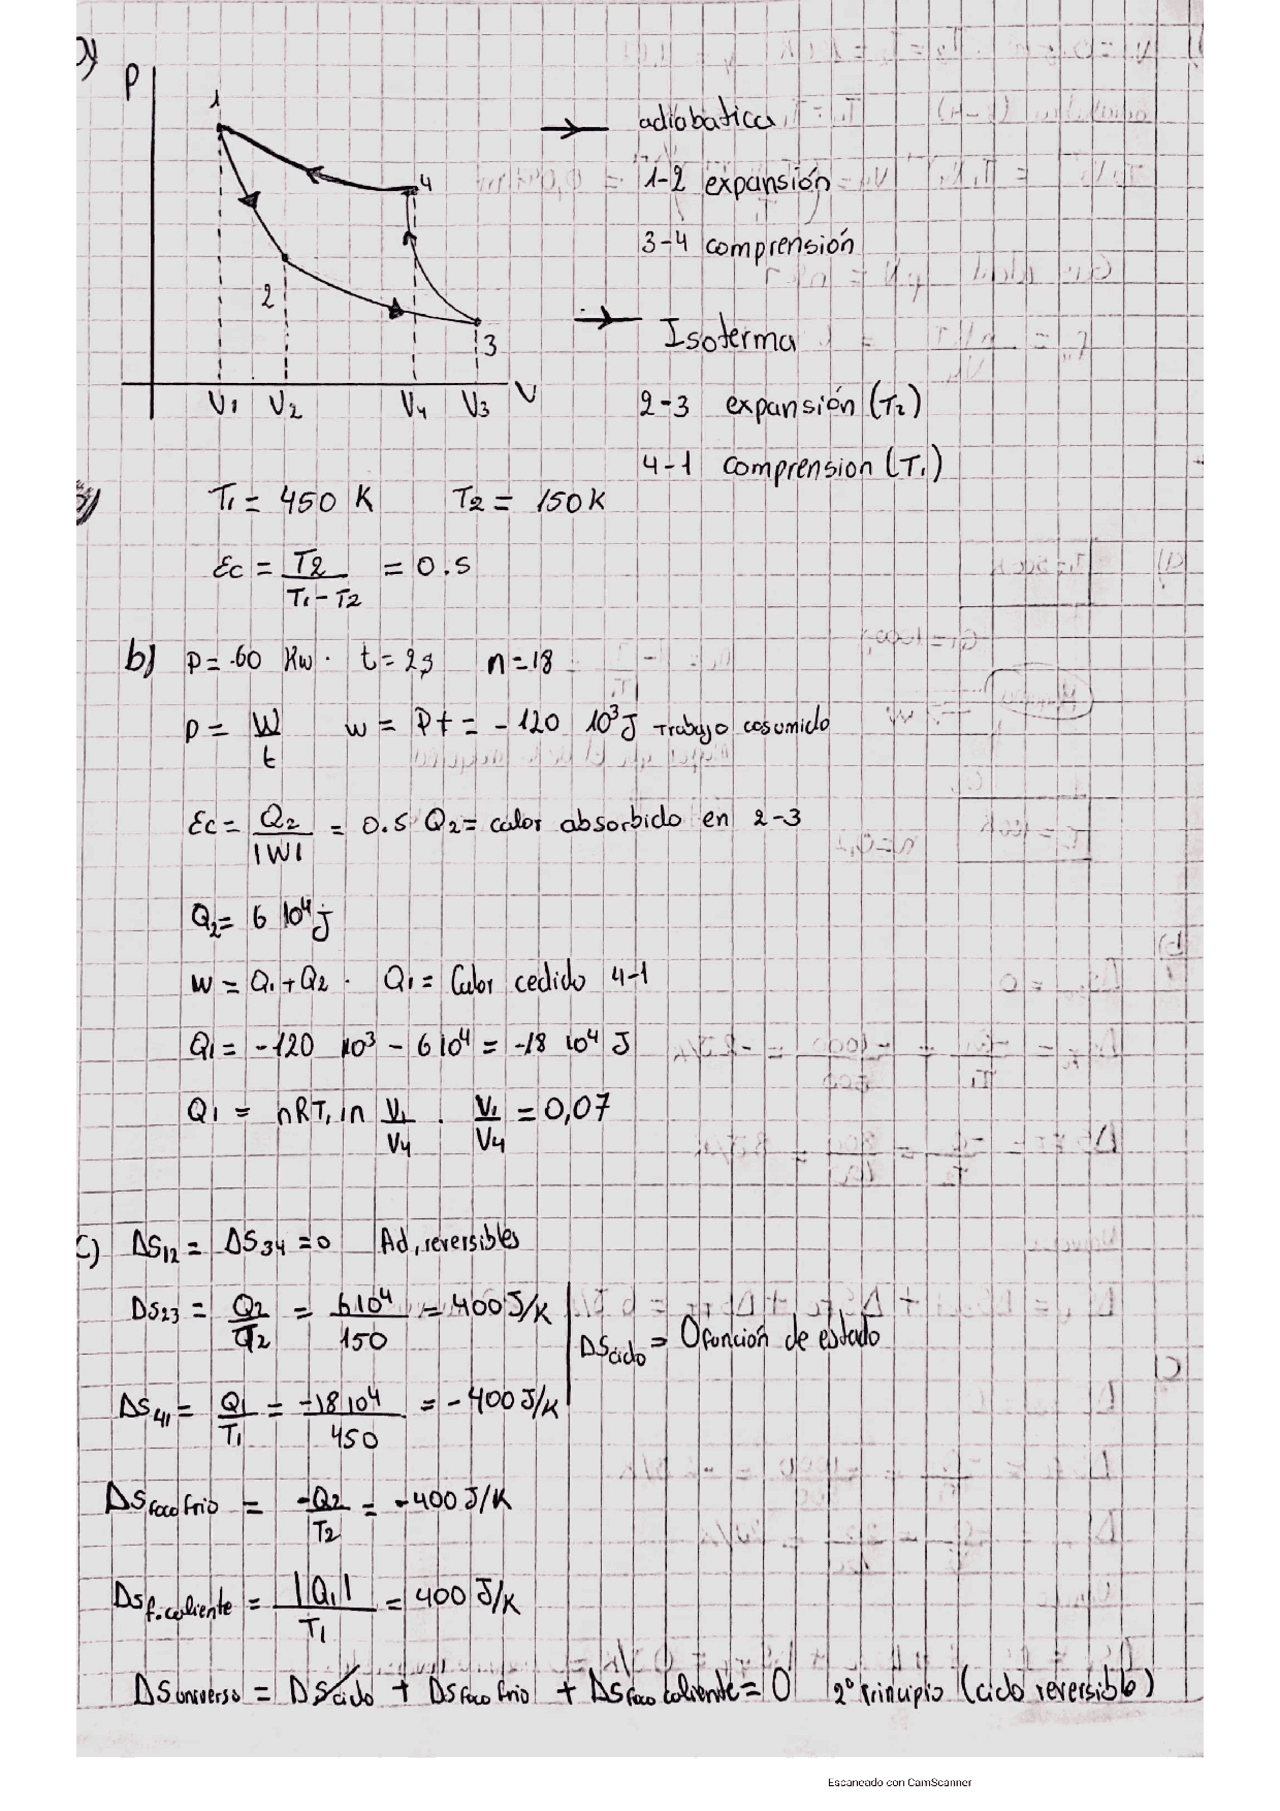 P
1
4
2
3
V1 V2 V4 V3 V
→ adiabatica
1-2 expansión
3-4 comprensión
→ Isoterma
2-3 expansión (T2)
4-1 comprension (T1)
T1 = 450 K T2 = 150 K
Ec = T2 / T1 - T2 = 0.5
b) P = -60 Kw. t = 2s n = 18
P = W / t w = Pt = -120 10³ J Trabajo cosumido
Ec = Q2 / |W| = 0.5 Q2 = calor absorbido en 2-3
Q2 = 6 10⁴ J
W = Q1 + Q2 . Q1 = Calor cedido 4-1
Q1 = -120 10³ - 6 10⁴ = -18 10⁴ J
Q1 = nRT1 ln V1 / V4 . V1 / V4 = 0,07
c) ΔS12 = ΔS34 = 0 Ad, reversibles
ΔS23 = Q2 / T2 = 6 10⁴ / 150 = 400 J/K
ΔSciclo = 0 función de estado
ΔS41 = Q1 / T1 = -18 10⁴ / 450 = -400 J/K
ΔSfoco frio = -Q2 / T2 = -400 J/K
ΔSf. caliente = |Q1| / T1 = 400 J/K
ΔSuniverso = ΔSciclo + ΔSfoco frio + ΔSfoco caliente = 0 2º Principio (ciclo reversible)
Escaneado con CamScanner